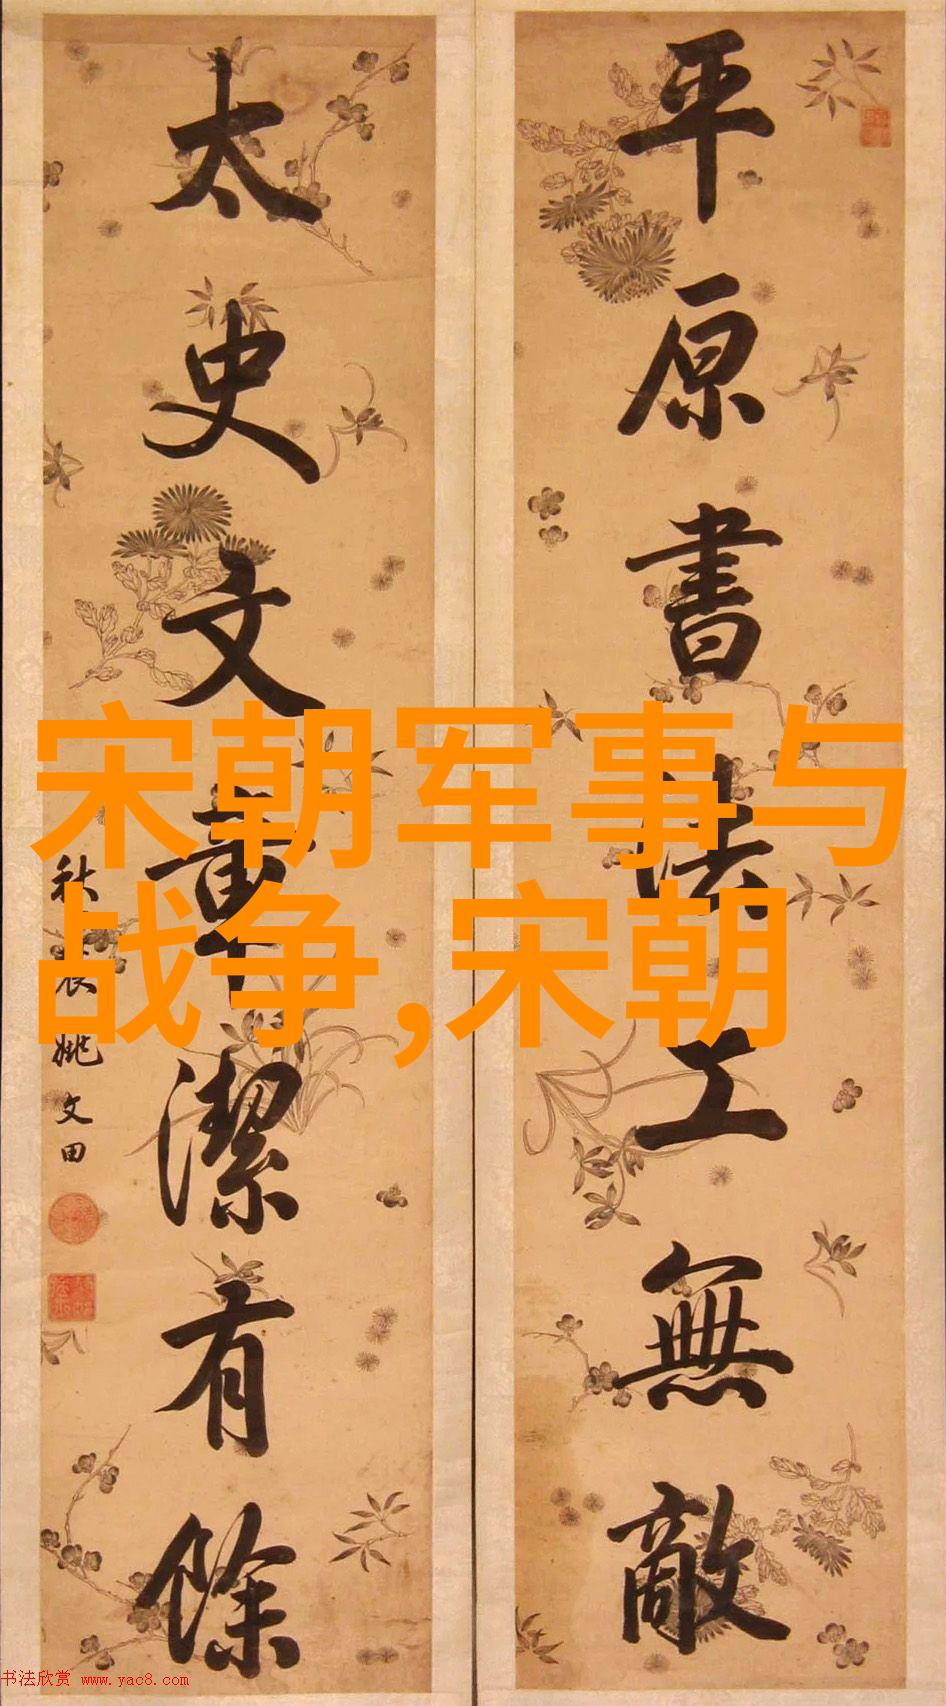 平原書法工無敵
太史文章潔有餘
秋農姚文田
宋朝军事与
战争,宋朝
书法欣赏 www.yac8.com